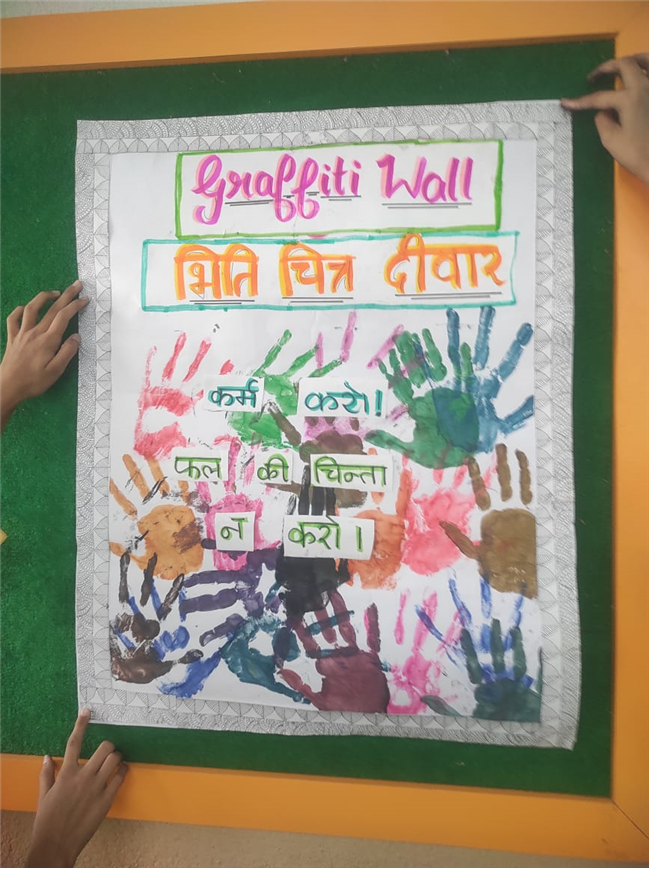 Graffiti Wall
भिति चित्र दीवार
कर्म करो!
फल की चिन्ता
न करो।